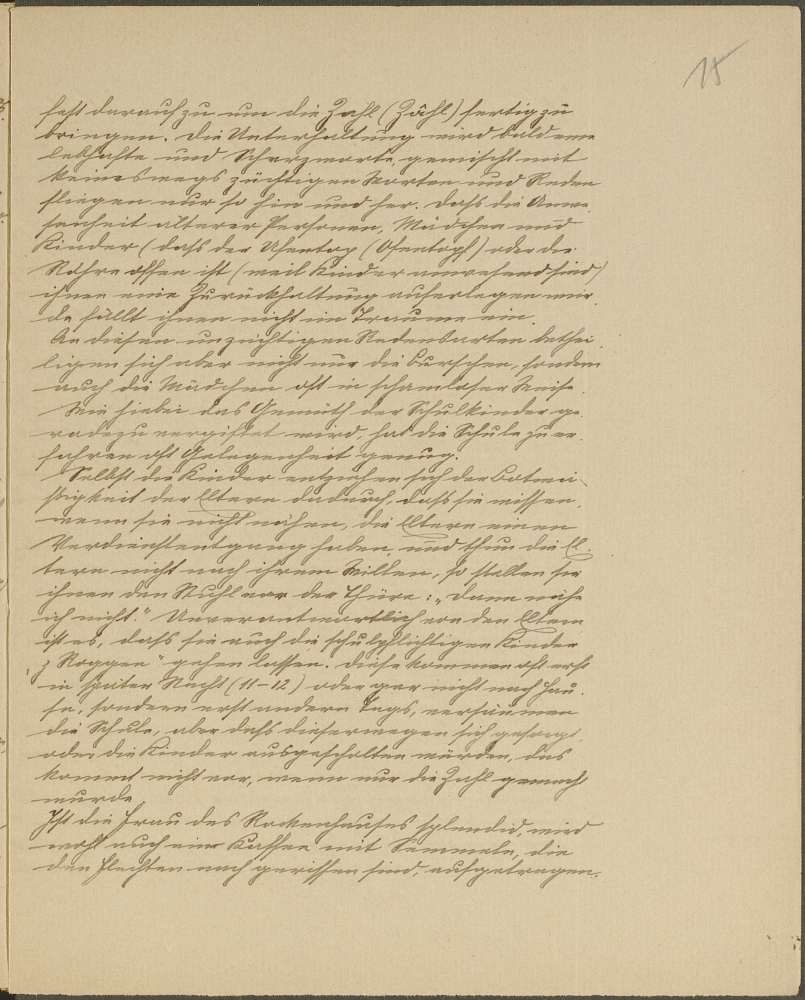 15
fest darauf zu um die Zahl (Zåhl) fertig zu
bringen. Die Unterhaltung wird bald eine
lebhafte und Scherzworte, gemischt mit
keineswegs züchtigen Worten und Reden
fliegen nur so hin und her. Dass die Anwe-
senheit älterer Personen, Mädchen und
Kinder (dass der Ufentop (Ofentopf) oder die
Röhre offen ist (weil Kinder anwesend sind)
ihnen eine Zurückhaltung auferlegen wür-
de fällt ihnen nicht im Traume ein.
An diesen unzüchtigen Redensarten bethei-
ligen sich aber nicht nur die Burschen, sondern
auch die Mädchen oft in schamloser Weise.
Wie hiebei das Gemüth der Schulkinder ge-
radezu vergiftet wird, hat die Schule zu er-
fahren oft Gelegenheit genug.
Selbst die Kinder entziehen sich der Botmä-
ßigkeit der Eltern dadurch, dass sie wissen,
wenn sie nicht nähen, die Eltern einen
Verdienstentgang haben, und thun die El-
tern nicht nach ihrem Willen, so stellen sie
ihnen den Stuhl vor der Thüre: „Dann nähe
ich nicht." Unverantwortlich von den Eltern
ist es, dass sie auch die schulpflichtigen Kinder
„z Roggen" gehen lassen. Diese kommen oft erst
in später Nacht (11-12) oder gar nicht nach Hau-
se, sondern erst andern Tags, versäumen
die Schule, aber dass dieserwegen sich gesorgt
oder die Kinder ausgescholten würden, das
kommt nicht vor, wenn nur die Zahl gemacht
wurde.
Ist die Frau des Rockenhauses splendid, wird
wohl auch ein Kaffee mit Semmeln, die
den Flechten nach gerissen sind, aufgetragen.